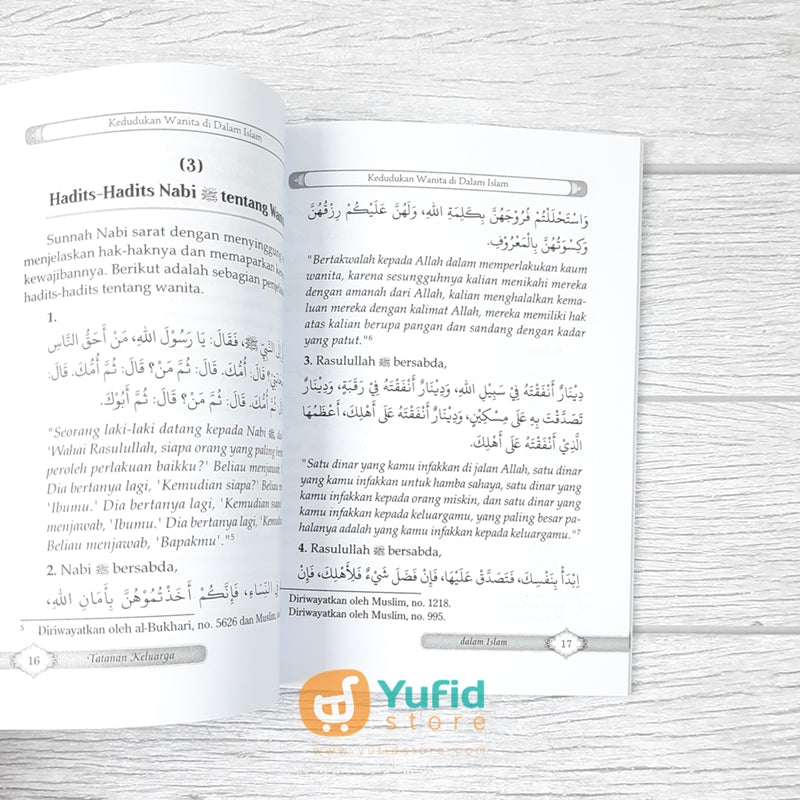 Kedudukan Wanita di Dalam Islam
(3)
Hadits-Hadits Nabi ﷺ tentang
Sunnah Nabi sarat dengan menyinggung
menjelaskan hak-haknya dan memaparkan
kewajibannya. Berikut adalah sebagian
hadits-hadits tentang wanita.
1.
النَّبِيِّ ﷺ، فَقَالَ: يَا رَسُوْلَ اللهِ، مَنْ أَحَقُّ النَّاسِ
قَالَ: أُمُّكَ. قَالَ: ثُمَّ مَنْ؟ قَالَ: ثُمَّ أُمُّكَ. قَالَ:
أُمُّكَ. قَالَ: ثُمَّ مَنْ؟ قَالَ: ثُمَّ أَبُوْكَ.
"Seorang laki-laki datang kepada Nabi ﷺ,
'Wahai Rasulullah, siapa orang yang paling
peroleh perlakuan baikku?' Beliau menjawab
Dia bertanya lagi, 'Kemudian siapa?' Beliau
'Ibumu.' Dia bertanya lagi, 'Kemudian
menjawab, 'Ibumu.' Dia bertanya lagi,
Beliau menjawab, 'Bapakmu'."5
2. Nabi ﷺ bersabda,
النِّسَاءِ، فَإِنَّكُمْ أَخَذْتُمُوْهُنَّ بِأَمَانِ اللهِ،
5 Diriwayatkan oleh al-Bukhari, no. 5626 dan Muslim,
16 Tatanan Keluarga
Kedudukan Wanita di Dalam Islam
وَاسْتَحْلَلْتُمْ فُرُوْجَهُنَّ بِكَلِمَةِ اللهِ، وَلَهُنَّ عَلَيْكُمْ رِزْقُهُنَّ
وَكِسْوَتُهُنَّ بِالْمَعْرُوْفِ.
"Bertakwalah kepada Allah dalam memperlakukan kaum
wanita, karena sesungguhnya kalian menikahi mereka
dengan amanah dari Allah, kalian menghalalkan kema-
luan mereka dengan kalimat Allah, mereka memiliki hak
atas kalian berupa pangan dan sandang dengan kadar
yang patut."6
3. Rasulullah ﷺ bersabda,
دِيْنَارٌ أَنْفَقْتَهُ فِي سَبِيْلِ اللهِ، وَدِيْنَارٌ أَنْفَقْتَهُ فِي رَقَبَةٍ، وَدِيْنَارٌ
تَصَدَّقْتَ بِهِ عَلَى مِسْكِيْنٍ، وَدِيْنَارٌ أَنْفَقْتَهُ عَلَى أَهْلِكَ، أَعْظَمُهَا
الَّذِيْ أَنْفَقْتَهُ عَلَى أَهْلِكَ.
"Satu dinar yang kamu infakkan di jalan Allah, satu dinar
yang kamu infakkan untuk hamba sahaya, satu dinar yang
kamu infakkan kepada orang miskin, dan satu dinar yang
kamu infakkan kepada keluargamu, yang paling besar pa-
halanya adalah yang kamu infakkan kepada keluargamu."7
4. Rasulullah ﷺ bersabda,
اِبْدَأْ بِنَفْسِكَ، فَتَصَدَّقْ عَلَيْهَا، فَإِنْ فَضَلَ شَيْءٌ فَلِأَهْلِكَ، فَإِنْ
Diriwayatkan oleh Muslim, no. 1218.
Diriwayatkan oleh Muslim, no. 995.
dalam Islam 17
Yufid
store
www.yufidstore.com